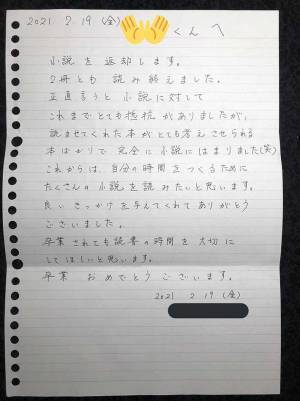 2021. 2. 19 (金)
くんへ
小説を返却します。
2冊とも読み終えました。
正直言うと小説に対して
これまでとても抵抗がありましたが、
読ませてくれた本がとても考えさせられる
本ばかりで完全に小説にはまりました(笑)
これからは、自分の時間をつくるために
たくさんの小説を読みたいと思います。
良いきっかけを与えてくれてありがとう
ございました。
卒業されても読書の時間を大切に
してほしいと思います。
卒業 おめでとうございます。
2021 2 19 (金)